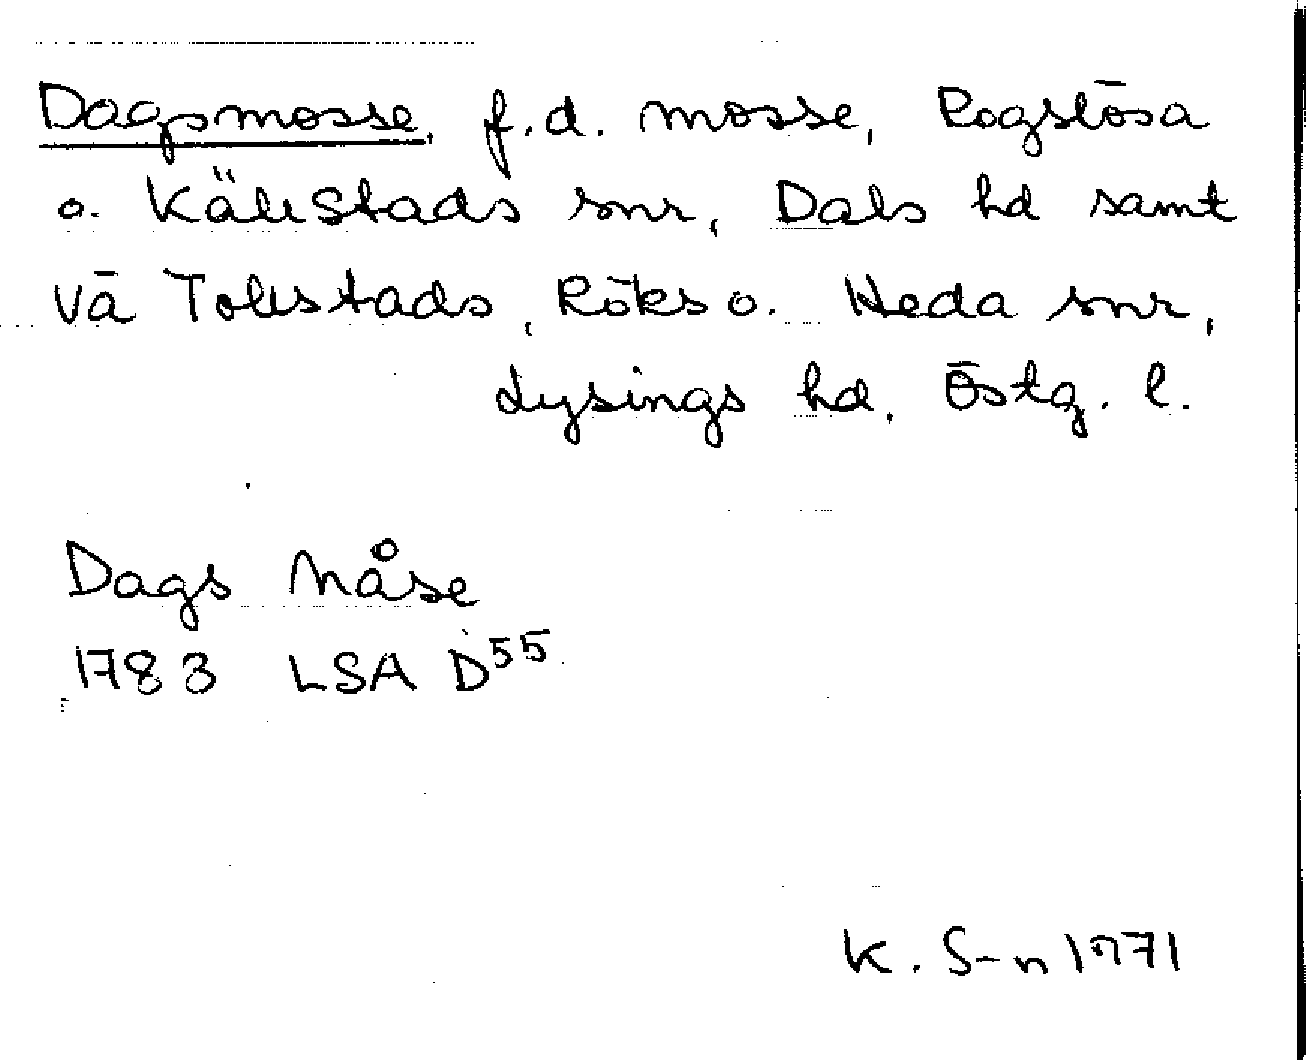 Dagsmosse, f.d. mosse, Rogslösa
o. Källstads snr, Dals hd samt
Vä Tollstads, Röks o. Heda snr,
Lysings hd, Östg. l.
Dags Måse
1783 LSA D55
K. S-n 1971